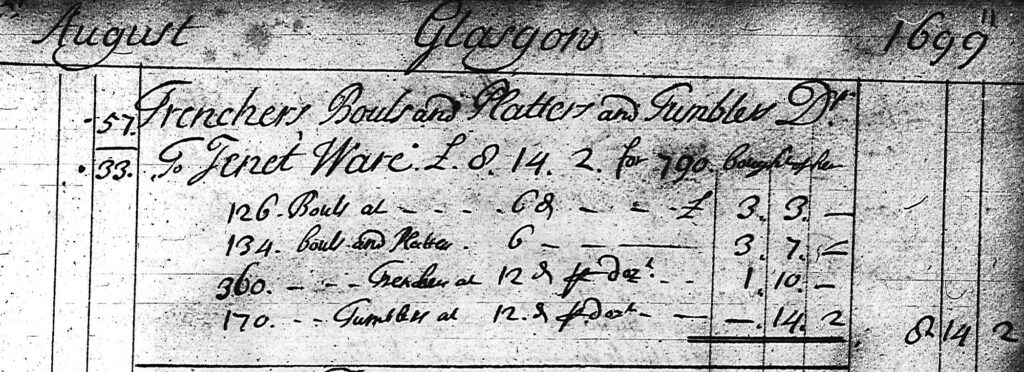 August Glasgow 1699
57. Trenchers Bouls and Platters and Tumblers Dr
33. To Jenet Ware. £. 8. 14. 2. for 790. bought of her
126. Bouls at - - - - 6 d - - - £ 3. 3. -
134. bouls and Platter. 6 - - - 3. 7. -
360. - - - Trencher at 12 d pr doz. - - 1. 10. -
170. - - Tumblers at 12. d pr doz. - - -. 14. 2 8 14 2